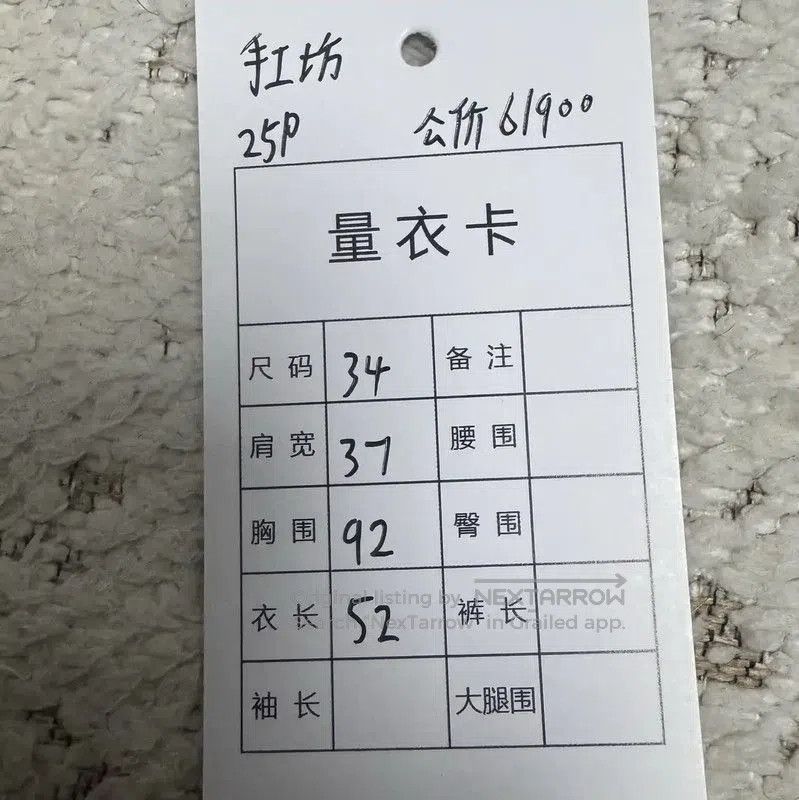 手工坊
25P 公价 61900
量衣卡
尺码 34 备注
肩宽 37 腰围
胸围 92 臀围
衣长 52 裤长
Original listing by NEXTARROW
Search "NexTarrow" in Grailed app.
袖长 大腿围